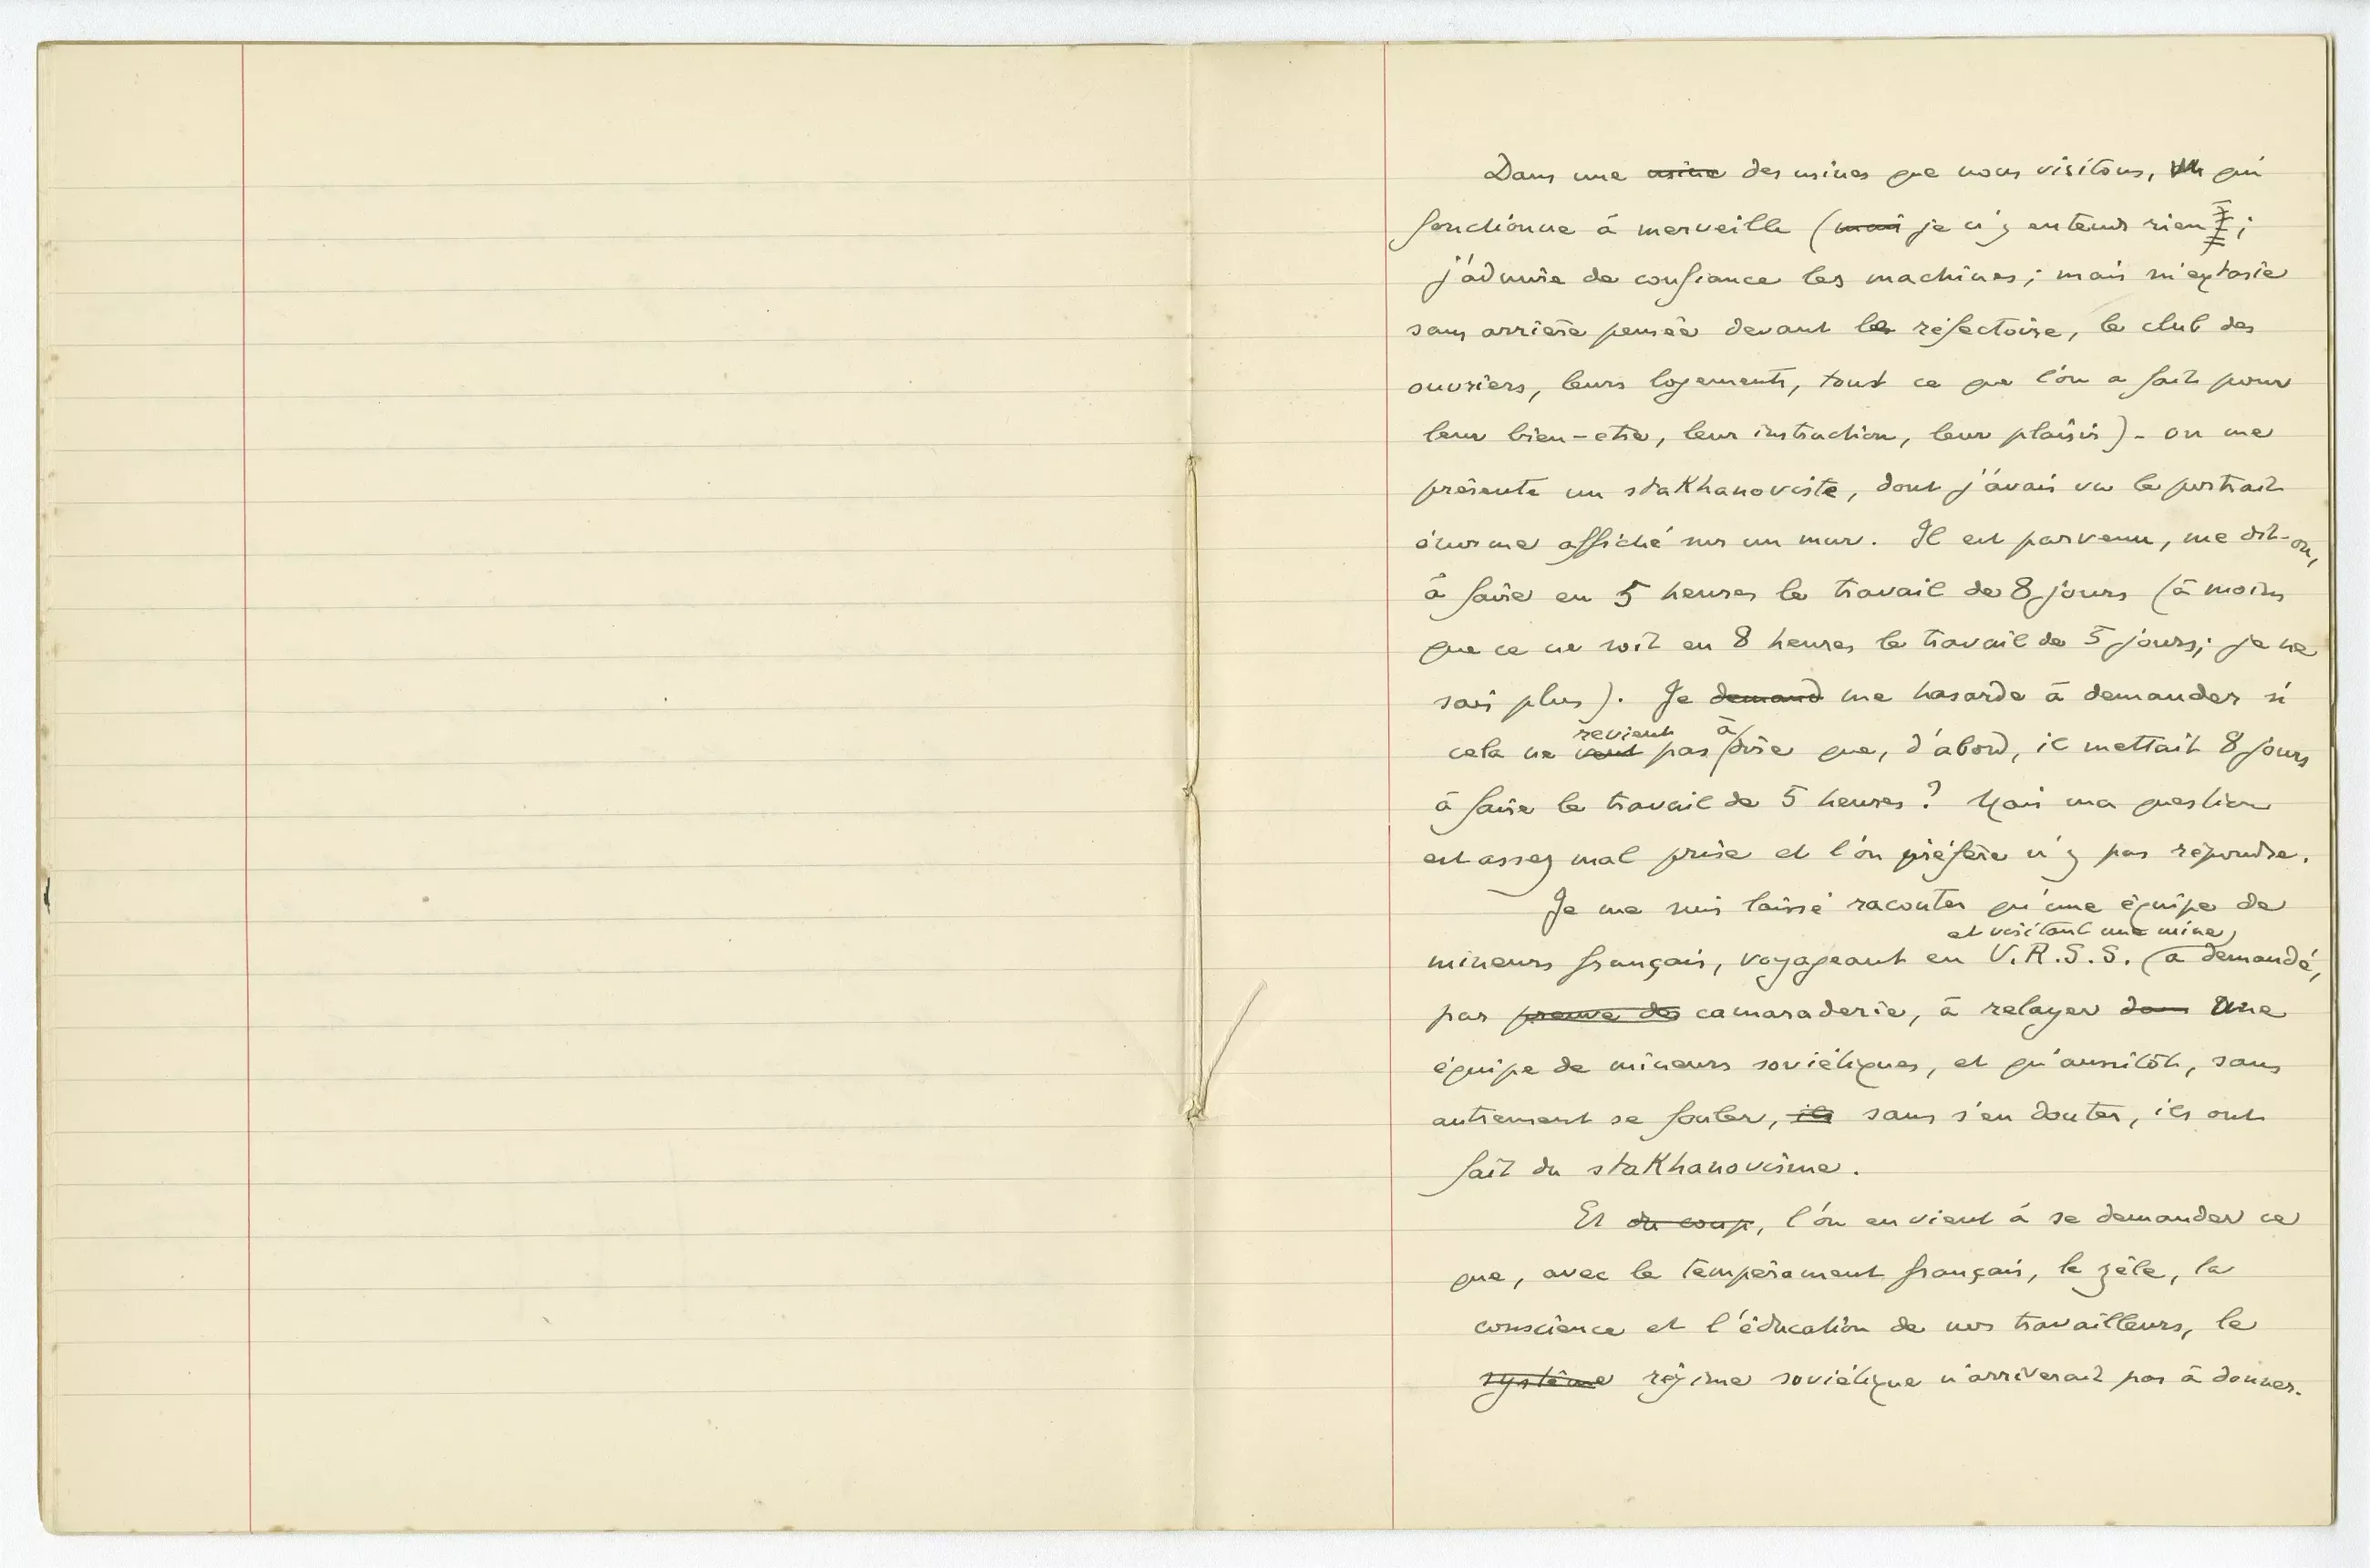 Dans une usine des usines que nous visitons, qui
fonctionne à merveille (mais je n'y entends rien ;
j'admire de confiance les machines ; mais m'extasie
sans arrière pensée devant le réfectoire, le club des
ouvriers, leurs logements, tout ce que l'on a fait pour
leur bien-etre, leur instruction, leur plaisir) - on me
présente un staKhanoviste, dont j'avais vu le portrait
énorme affiché sur un mur. Il est parvenu, me dit-on,
à faire en 5 heures le travail de 8 jours (à moins
que ce ne soit en 8 heures le travail de 5 jours ; je ne
sais plus). Je demand me hasarde à demander si
revient à
cela ne veut pas dire que, d'abord, il mettait 8 jours
à faire le travail de 5 heures ? Mais ma question
est assez mal prise et l'on préfère n'y pas répondre.
Je me suis laissé raconter qu'une équipe de
et visitant une mine,
mineurs français, voyageant en U.R.S.S. a demandé,
par preuve de camaraderie, à relayer dans une
équipe de mineurs soviétiques, et qu'aussitôt, sans
autrement se fouler, ils sans s'en douter, ils ont
fait du staKhanovisme.
Et du coup, l'on en vient à se demander ce
que, avec le tempérament français, le zèle, la
conscience et l'éducation de nos travailleurs, le
système régime soviétique n'arriverait pas à donner.